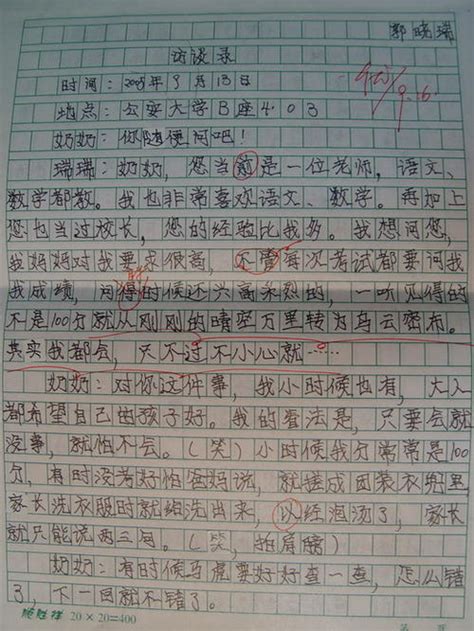 郭晓瑞
访谈录
时间：2005年9月13日
地点：公安大学B座403
奶奶：你随便问吧！
瑞瑞：奶奶，您当前是一位老师，语文、
数学都教。我也非常喜欢语文、数学。再加上
您也当过校长，您的经验比我多。我想问您，
我妈妈对我要求很高，不管每次考试都要问我
我成绩，问得时候还兴高采烈的，一听见得的
不是100分就从刚刚的晴空万里转为乌云密布。
其实我都会，只不过不小心就……
奶奶：对你这件事，我小时候也有，大人
都希望自己的孩子好。我的看法是，只要会就
没事，就怕不会。（笑）小时候我分常常是100
分，有时没考好怕爸妈说，就揉成团装衣兜里
家长洗衣服时就给洗出来，以经泡汤了，家长
就只能说两三句。（笑，拍肩膀）
奶奶：有时候马虎要好好查一查，怎么错
了，下一回就不错了。
20×20=400
9.16.